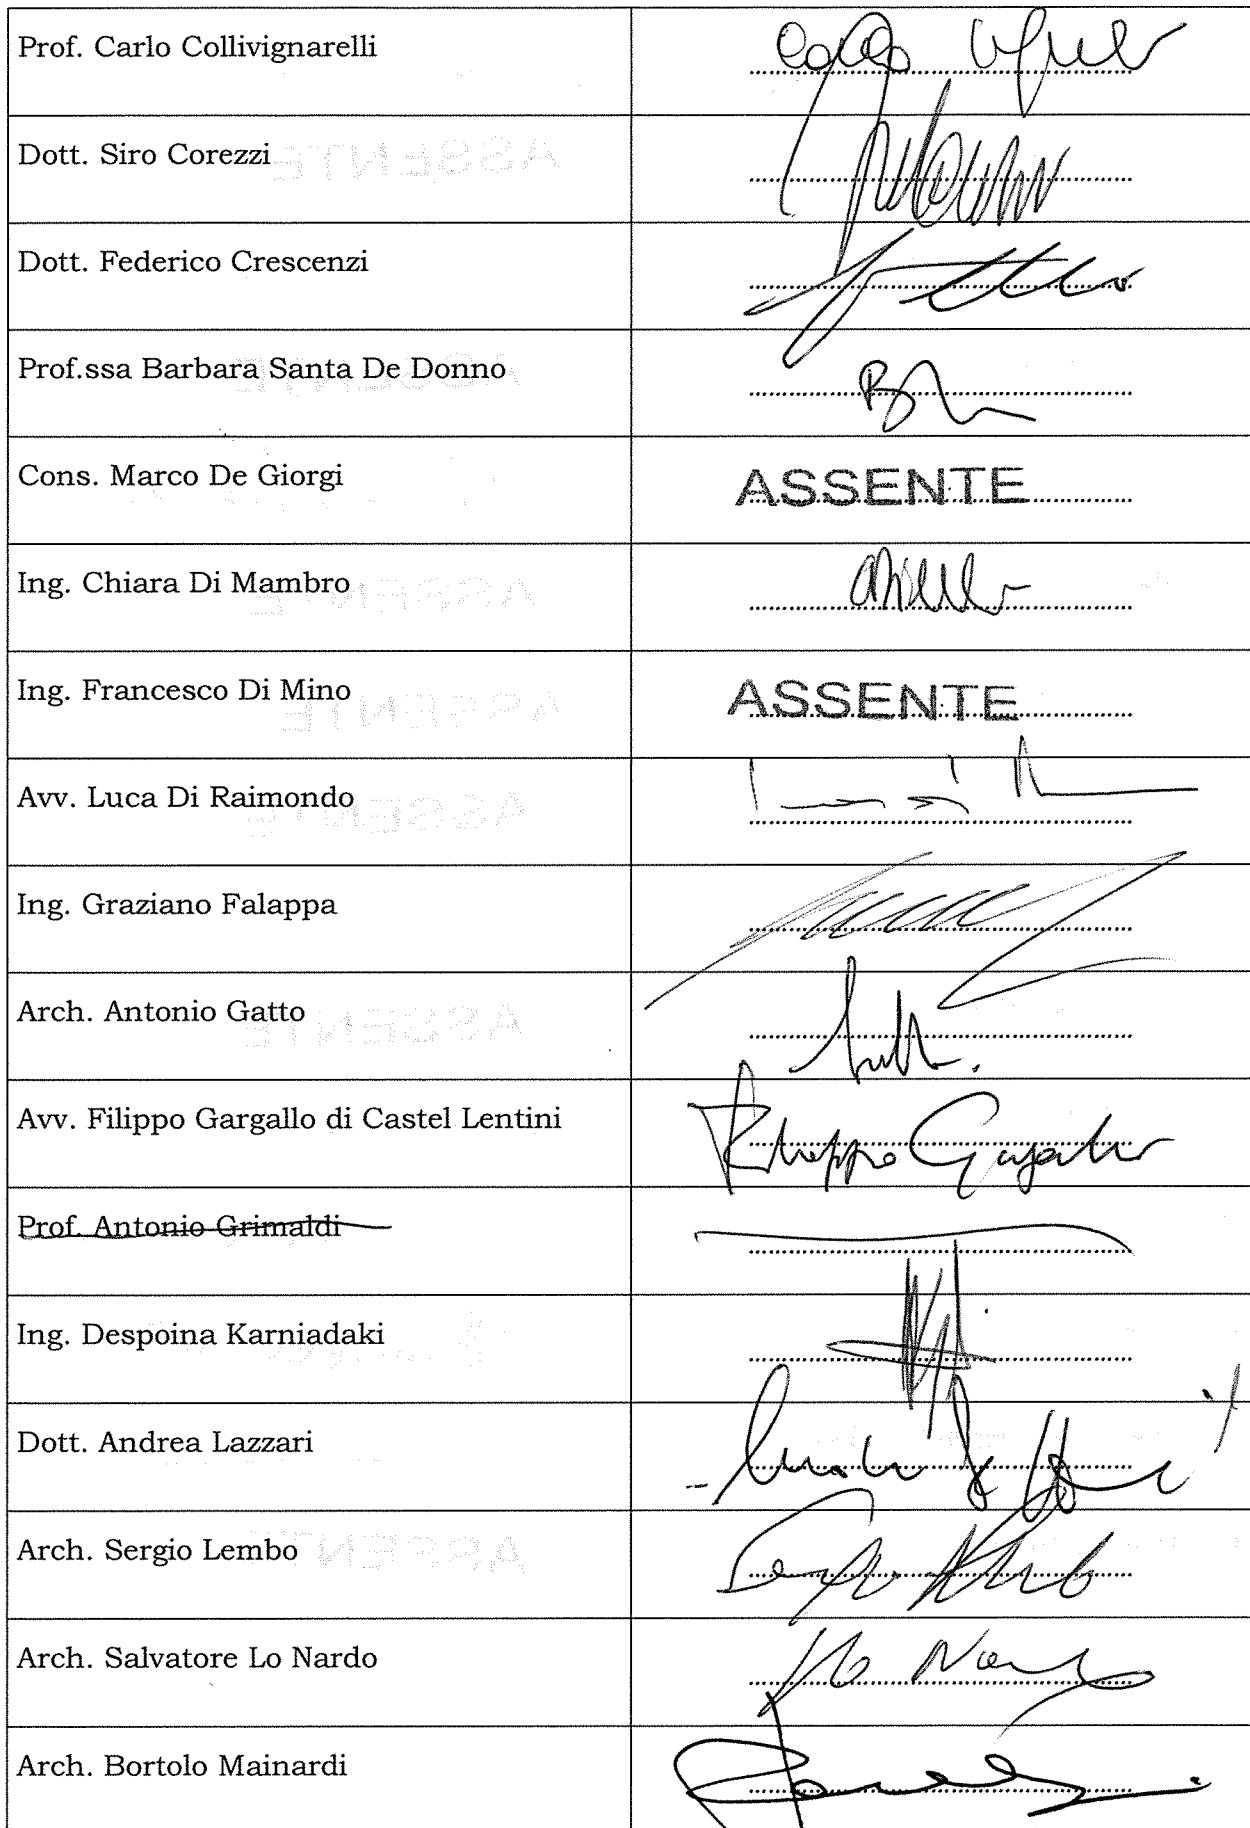 Prof. Carlo Collivignarelli
Dott. Siro Corezzi
Dott. Federico Crescenzi
Prof.ssa Barbara Santa De Donno
Cons. Marco De Giorgi ASSENTE
Ing. Chiara Di Mambro
Ing. Francesco Di Mino ASSENTE
Avv. Luca Di Raimondo
Ing. Graziano Falappa
Arch. Antonio Gatto
Avv. Filippo Gargallo di Castel Lentini
Prof. Antonio Grimaldi
Ing. Despoina Karniadaki
Dott. Andrea Lazzari
Arch. Sergio Lembo
Arch. Salvatore Lo Nardo
Arch. Bortolo Mainardi